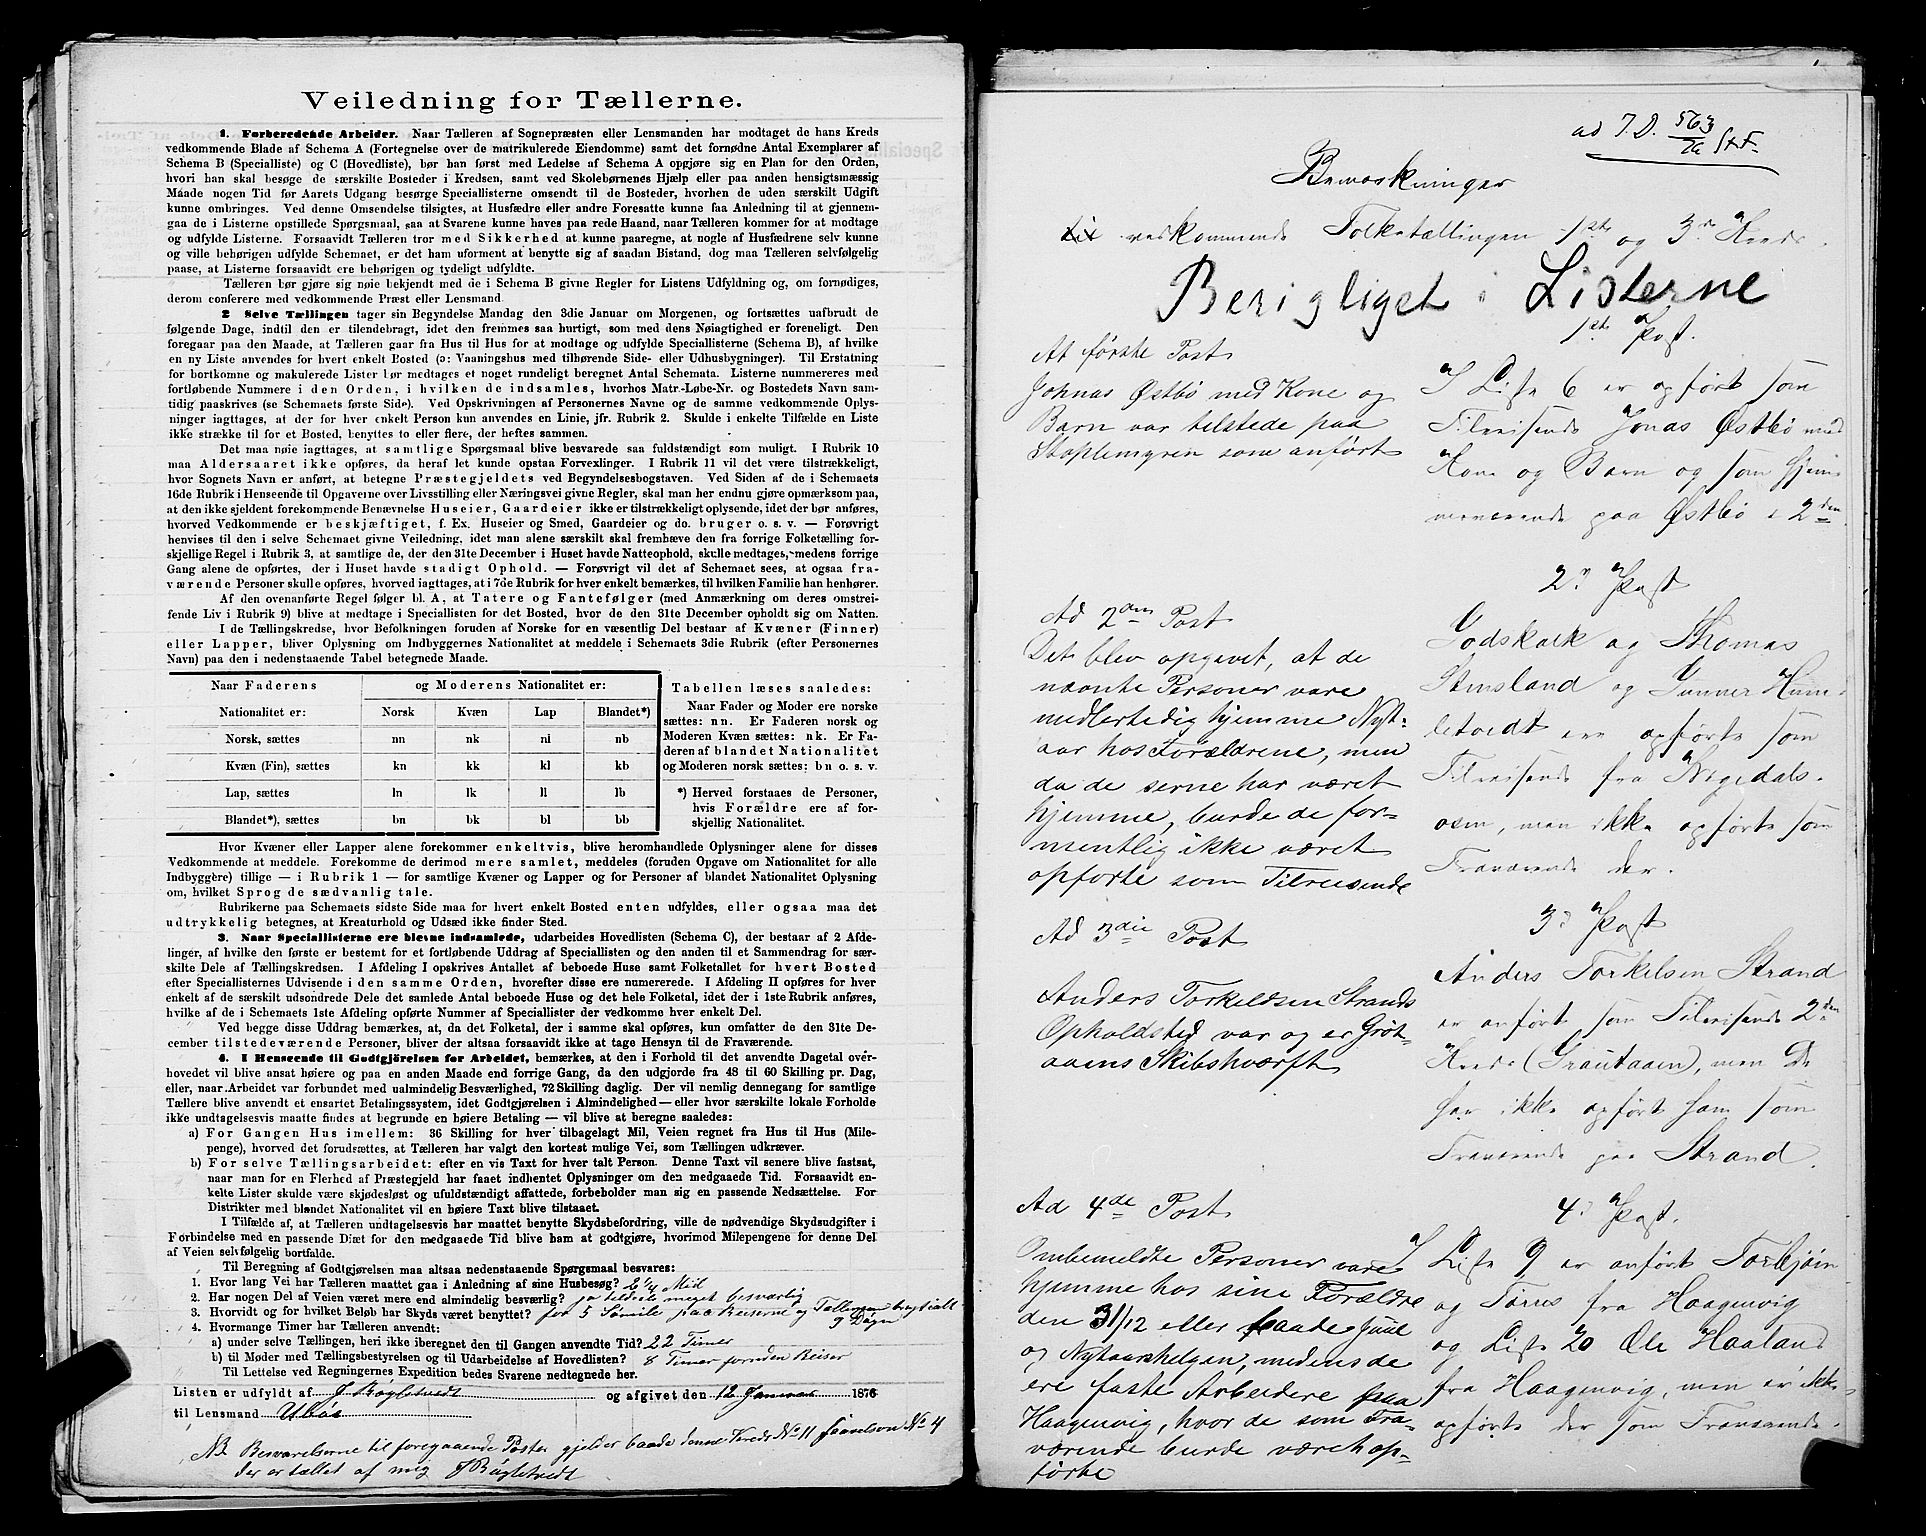 Veiledning for Tællerne.
1. Forberedende Arbeider. Naar Tælleren af Sognepræsten eller Lensmanden har modtaget de hans Kreds
vedkommende Blade af Schema A (Fortegnelse over de matrikulerede Eiendomme) samt det fornødne Antal Exemplarer af
Schema B (Specialliste) og C (Hovedliste), bør han først med Ledelse af Schema A opgjøre sig en Plan for den Orden,
hvori han skal besøge de særskilte Bosteder i Kredsen, samt ved Skolebørnenes Hjælp eller paa anden hensigtsmæssig
Maade nogen Tid før Aarets Udgang besørge Speciallisterne omsendt til de Bosteder, hvorhen de uden særskilt Udgift
kunne ombringes. Ved denne Omsendelse tilsigtes, at Husfædre eller andre Foresatte kunne faa Anledning til at gjennem-
gaa de i Listerne opstillede Spørgsmaal, saa at Svarene kunne haves paa rede Haand, naar Tælleren kommer for at modtage
og udfylde Listerne. Forsaavidt Tælleren tror med Sikkerhed at kunne paaregne, at nogle af Husfædrene selv kunne
og ville behørigen udfylde Schemaet, er det ham uforment at benytte sig af saadan Bistand, dog maa Tælleren selvfølgelig
paase, at Listerne forsaavidt ere behørigen og tydeligt udfyldte.
Tælleren bør gjøre sig nøie bekjendt med de i Schema B givne Regler for Listens Udfyldning og, om fornødiges,
derom conferere med vedkommende Præst eller Lensmand.
2 Selve Tællingen tager sin Begyndelse Mandag den 3die Januar om Morgenen, og fortsættes uafbrudt de
følgende Dage, indtil den er tilendebragt, idet den fremmes saa hurtigt, som med dens Nøiagtighed er foreneligt. Den
foregaar paa den Maade, at Tælleren gaar fra Hus til Hus for at modtage og udfylde Speciallisterne (Schema B), af hvilke
en ny Liste anvendes for hvert enkelt Bosted (ɔ: Vaaningshus med tilhørende Side- eller Udhusbygninger). Til Erstatning
for bortkomne og makulerede Lister bør medtages et noget rundeligt beregnet Antal Schemata. Listerne nummereres med
fortløbende Nummere i den Orden, i hvilken de indsamles, hvorhos Matr.-Løbe-Nr. og Bostedets Navn sam-
tidig paaskrives (se Schemaets første Side). Ved Opskrivningen af Personernes Navne og de samme vedkommende Oplys-
ninger iagttages, at der for hver enkelt Person kun anvendes en Linie, jfr. Rubrik 2. Skulde i enkelte Tilfælde en Liste
ikke strække til for et Bosted, benyttes to eller flere, der heftes sammen.
Det maa nøie iagttages, at samtlige Spørgsmaal blive besvarede saa fuldstændigt som muligt. I Rubrik 10
maa Aldersaaret ikke opføres, da heraf let kunde opstaa Forvexlinger. I Rubrik 11 vil det være tilstrækkeligt,
hvor Sognets Navn er anført, at betegne Præstegjeldets ved Begyndelsesbogstaven. Ved Siden af de i Schemaets
16de Rubrik i Henseende til Opgaverne over Livsstilling eller Næringsvei givne Regler, skal man her endnu gjøre opmærksom paa,
at den ikke sjeldent forekommende Benævnelse Huseier, Gaardeier ikke er tilstrækkeligt oplysende, idet der bør anføres,
hvorved Vedkommende er beskjæftiget, f. Ex. Huseier og Smed, Gaardeier og do. bruger o. s. v. — Forøvrigt
henvises til den i selve Schemaet givne Veiledning, idet man alene særskilt skal fremhæve den fra forrige Folketælling for-
skjellige Regel i Rubrik 3, at samtlige de, der den 31te December i Huset havde Natteophold, skulle medtages, medens forrige
Gang alene de opførtes, der i Huset havde stadigt Ophold. — Forøvrigt vil det af Schemaet sees, at ogsaa fra-
værende Personer skulle opføres, hvorved iagttages, at i 7de Rubrik for hver enkelt bemærkes, til hvilken Familie han henhører.
Af den ovenanførte Regel følger bl. A, at Tatere og Fantefølger (med Anmærkning om deres omstrei-
fende Liv i Rubrik 9) blive at medtage i Speciallisten for det Bosted, hvor de den 31te December opholdt sig om Natten.
I de Tællingskredse, hvor Befolkningen foruden af Norske for en væsentlig Del bestaar af Kvæner (Finner)
eller Lapper, bliver Oplysning om Indbyggernes Nationalitet at meddele i Schemaets 3die Rubrik (efter Personernes
Navn) paa den i nedenstaaende Tabel betegnede Maade.
Naar Faderens og Moderens Nationalitet er:
Nationalitet er: Norsk Kvæn Lap Blandet*)
Norsk, sættes nn nk nl nb
Kvæn (Fin), sættes kn kk kl kb
Lap, sættes ln lk ll lb
Blandet*), sættes bn bk bl bb
Tabellen læses saaledes:
Naar Fader og Moder ere norske
sættes: nn. Er Faderen norsk og
Moderen Kvæn sættes: nk. Er Fa-
deren af blandet Nationalitet
og Moderen norsk sættes: bn o. s. v.
*) Herved forstaaes de Personer,
hvis Forældre ere af for-
skjellig Nationalitet.
Hvor Kvæner eller Lapper alene forekommer enkeltvis, blive heromhandlede Oplysninger alene for disses
Vedkommende at meddele. Forekomme de derimod mere samlet, meddeles (foruden Opgave om Nationalitet for alle
Indbyggere) tillige — i Rubrik 1 — for samtlige Kvæner og Lapper og for Personer af blandet Nationalitet Oplysning
om, hvilket Sprog de sædvanlig tale.
Rubrikerne paa Schemaets sidste Side maa for hvert enkelt Bosted enten udfyldes, eller ogsaa maa det
udtrykkelig betegnes, at Kreaturhold og Udsæd ikke finder Sted.
3. Naar Speciallisterne ere blevne indsamlede, udarbeides Hovedlisten (Schema C), der bestaar af 2 Afde-
linger, af hvilke den første er bestemt for et fortløbende Uddrag af Speciallisten og den anden til et Sammendrag for sær-
skilte Dele af Tællingskredsen. I Afdeling I opskrives Antallet af beboede Huse samt Folketallet for hvert Bosted
efter Speciallisternes Udvisende i den samme Orden, hvorefter disse ere numererede. I Afdeling II opføres for hver
enkelt af de særskilt udsondrede Dele det samlede Antal beboede Huse og det hele Folketal, idet der i 1ste Rubrik anføres,
hvilke af de i Schemaets 1ste Afdeling opførte Nummer af Speciallister der vedkomme hver enkelt Del.
Ved begge disse Uddrag bemærkes, at, da det Folketal, der i samme skal opføres, kun omfatter de den 31te De-
cember tilstedeværende Personer, bliver der altsaa forsaavidt ikke at tage Hensyn til de Fraværende.
4. I Henseende til Godtgjörelsen for Arbeidet, bemærkes, at den i Forhold til det anvendte Dagetal over-
hovedet vil blive ansat høiere og paa en anden Maade end forrige Gang, da den udgjorde fra 48 til 60 Skilling pr. Dag,
eller, naar Arbeidet var forbundet med ualmindelig Besværlighed, 72 Skilling daglig. Der vil nemlig dennegang for samtlige
Tællere blive anvendt et ensartet Betalingssystem, idet Godtgjörelsen i Almindelighed — eller hvor særskilte lokale Forholde
ikke undtagelsesvis maatte findes at begrunde en høiere Betaling — vil blive at beregne saaledes:
a) For Gangen Hus imellem: 36 Skilling for hver tilbagelagt Mil, Veien regnet fra Hus til Hus (Mile-
penge), hvorved det forudsættes, at Tælleren har valgt den kortest mulige Vei, som Tællingen udkræver.
b) For selve Tællingsarbeidet: efter en vis Taxt for hver talt Person. Denne Taxt vil senere blive fastsat,
naar man for en Flerhed af Præstegjeld har faaet indhentet Oplysninger om den medgaaede Tid. Forsaavidt en-
kelte Lister skulde være skjødesløst og ufuldstændigt affattede, forbeholder man sig en passende Nedsættelse. For
Distrikter med blandet Nationalitet vil en høiere Taxt blive tilstaaet.
I Tilfælde af, at Tælleren undtagelsesvis har maattet benytte Skydsbefordring, ville de nødvendige Skydsudgifter i
Forbindelse med en passende Diæt for den medgaaede Tid blive ham at godtgjøre, hvorimod Milepengene for denne Del
af Veien selvfølgelig bortfalde.
Til Beregning af Godtgjörelsen maa altsaa nedenstaaende Spørgsmaal besvares:
1. Hvor lang Vei har Tælleren maattet gaa i Anledning af sine Husbesøg? 2 1/4 Miil
2. Har nogen Del af Veien været mere end almindelig besværlig? ja tildels meget besværlig
3. Hvorvidt og for hvilket Beløb har Skyds været benyttet? for 5 Sömile paa Reiserne og Tællingen
9 Dögn
4. Hvormange Timer har Tælleren anvendt:
a) under selve Tællingen, heri ikke iberegnet den til Gangen anvendte Tid? 22 Timer
b) til Møder med Tællingsbestyrelsen og til Udarbeidelse af Hovedlisten? 8 Timer foruden Reiser
Til Lettelse ved Regningernes Expedition bedes Svarene nedtegnede her.
Listen er udfyldt af J Bögletvedt og afgivet den 12 Januar 1876
til Lensmand Ubøe
NB Besvarelserne til foregaaende Poster gjelder baade denne Kreds No 11 No 4
der er tællet af mig J Bögletvedt
ad J.D. 563/76 StF.
Bemærkninger
vedkommende Folketællingen 1ste og 3die Kreds.
Berigtiget i Listerne
At første Post
Johnas Østbö med Kone og
Barn var tilstede paa
Støplemyren som anført
Ad 2den Post
Det blev opgivet, at de
nævnte Personer vare
medlertidig hjemme Nyt-
aar hos Forældrene, men
da de serne har været
hjemme, burde de for-
mentlig ikke været
opførte som Tilreisende
Ad 3die Post
Anders Torkeldsen Strands
Opholdsted var og er Gröt-
aaens Skibsværft
Ad 4de Post
Ombemeldte Personer vare
hjemme hos sine Forældre
den 31/12 eller baade Juul
og Nytaarshelgen, medens de
ere faste Arbeidere paa
Haagenvig, hvor de som Fra-
værende burde været op-
førte
1ste Post.
I Liste 6 er opført som
Tilreisende Jonas Østbö med
Kone og Barn og som hjem-
meværende paa Østbö i 2den
2d Post
Godskalk og Thomas
Stensland og Gunner Hum-
letvedt ere opførte som
Tilreisende fra Nygedals-
osen, men ikke opførte som
Fraværende der.
3d Post
Anders Torkelsen Strand
er anført som Tilreisende 2den
Kreds (Grautaaen), men De
har ikke opført ham som
Fraværende paa Strand.
4d Post.
I Liste 9 er anført Torbjörn
og Törres fra Haagenvig
og Liste 20 Ole Haaland
fra Haagenvig, men er ikke
opførte der som Fraværende.